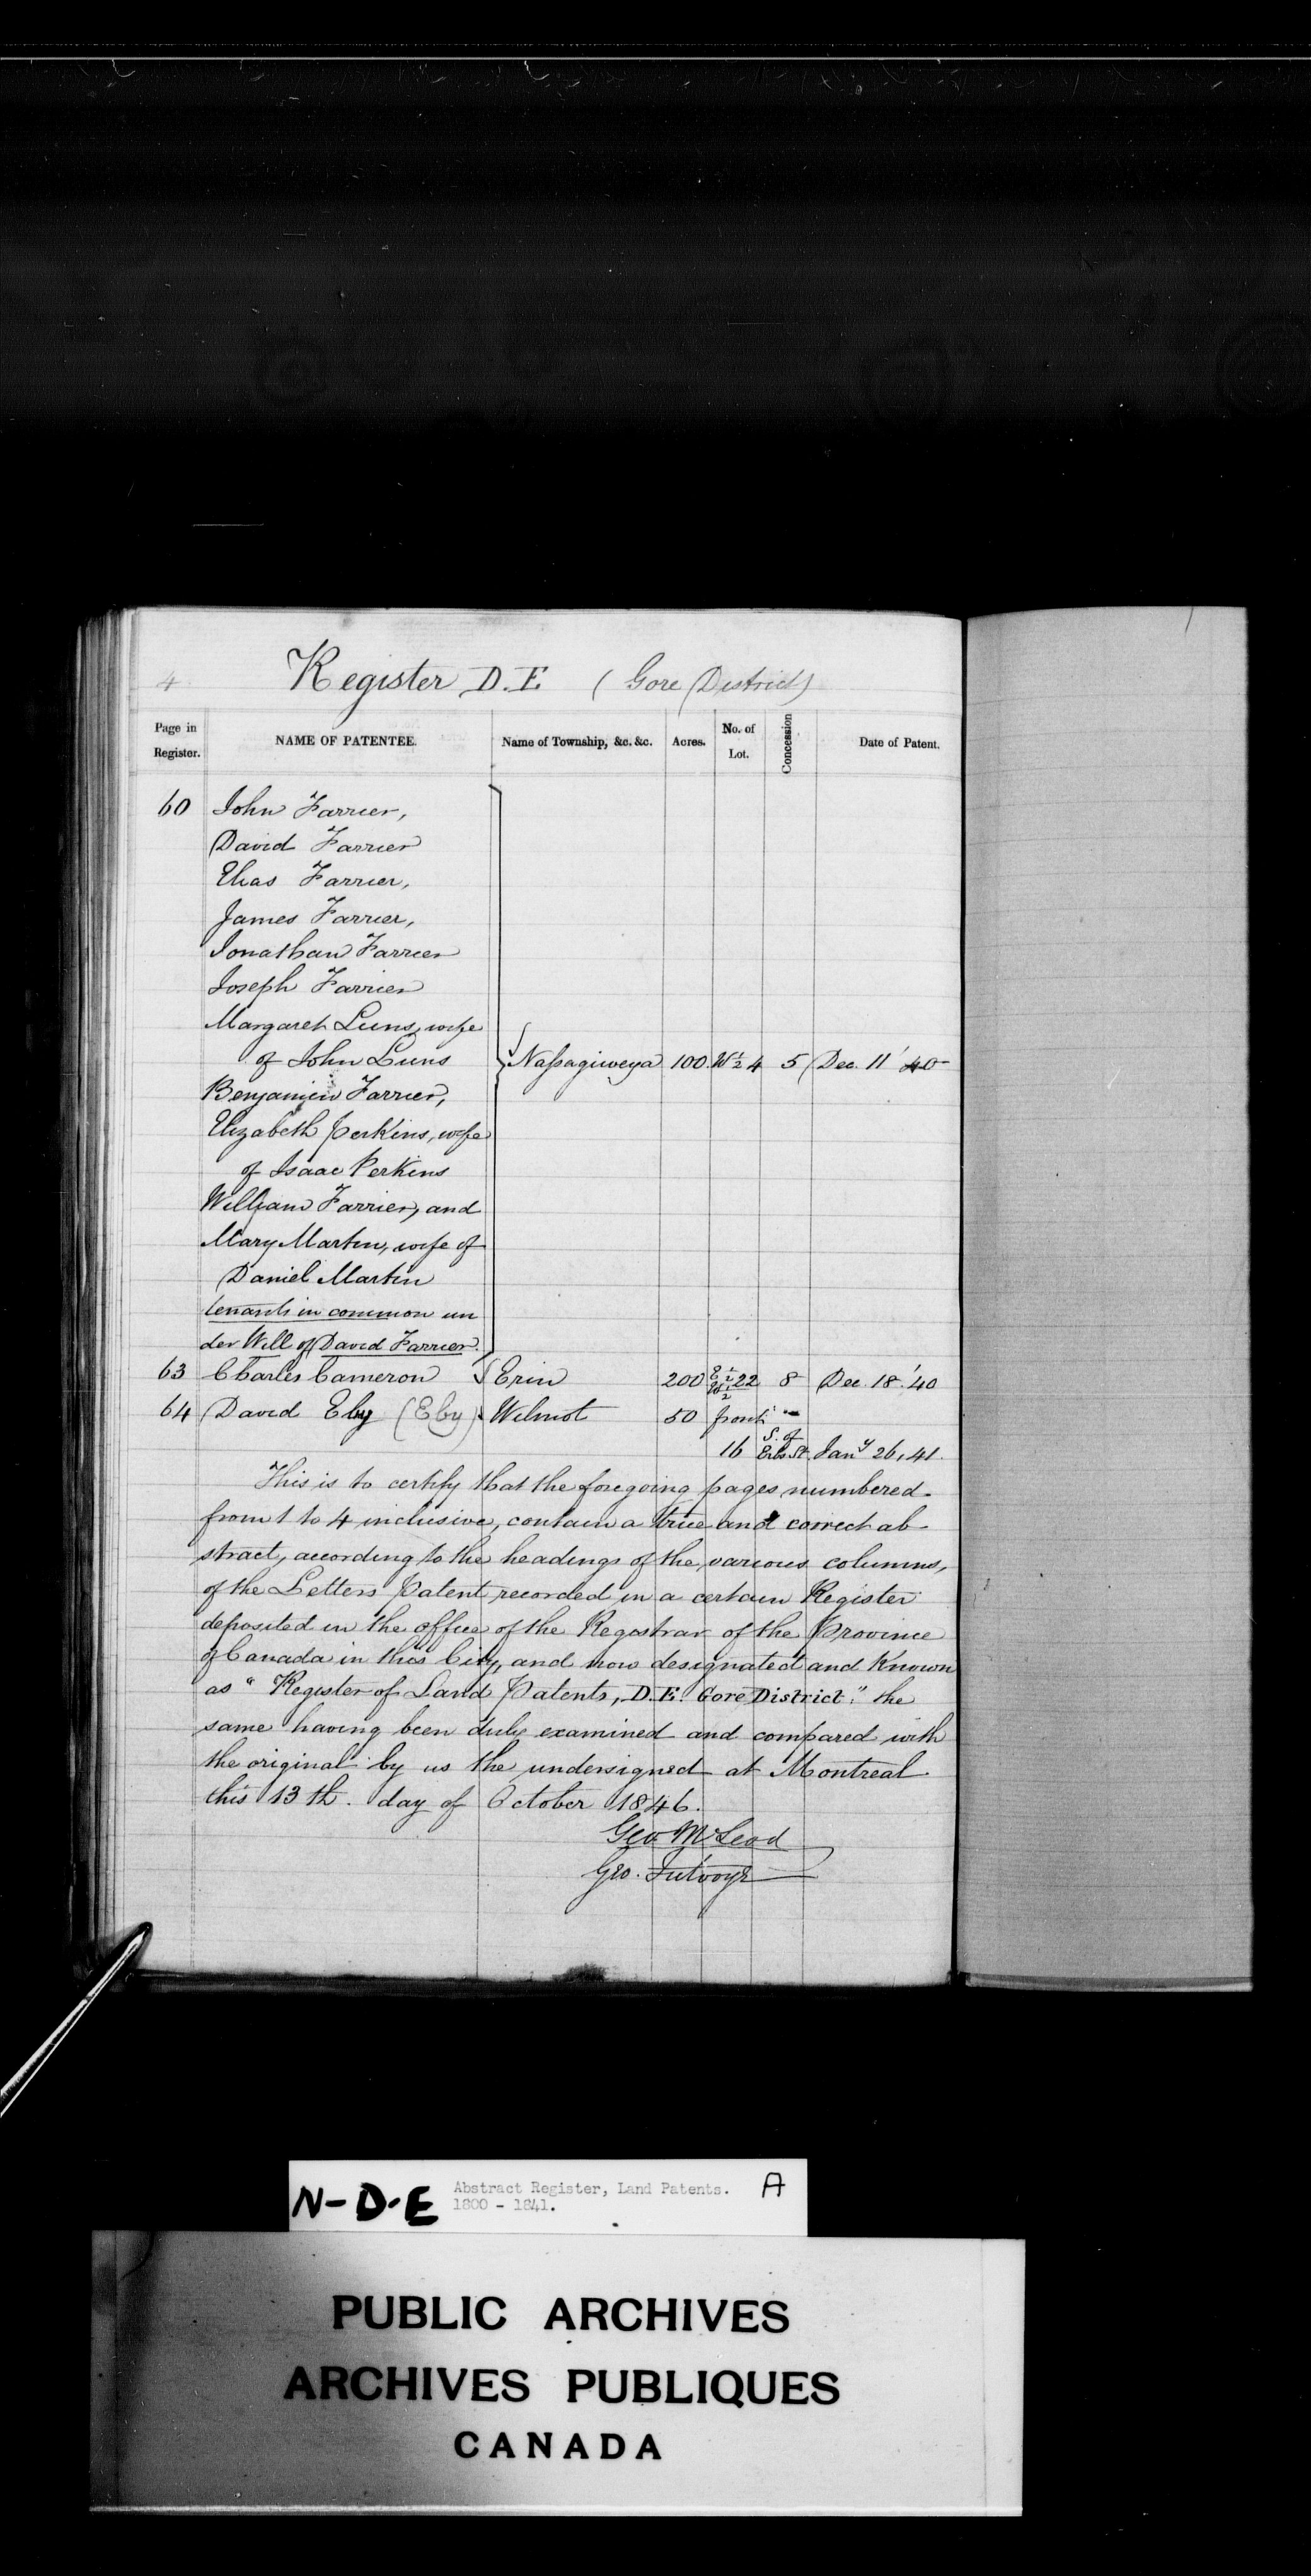 4
Register D.E (Gore District)
Page in Register. NAME OF PATENTEE. Name of Township, &c. &c. Acres. No. of Lot. Concession Date of Patent.
60 John Farrier,
David Farrier
Elias Farrier,
James Farrier,
Jonathan Farrier
Joseph Farrier
Margaret Luns, wife
of John Luns Naſsagiweya 100 W½ 4 5 Dec. 11 '40
Benjamin Farrier,
Elizabeth Perkins, wife
of Isaac Perkins
William Farrier, and
Mary Martin, wife of
Daniel Martin
tenants in common un
der Will of David Farrier.
63 Charles Cameron Erin 200 E½ W½ 22 8 Dec. 18. '40
64 David Eby (Eby) Wilmot 50 front
16 S. of Erbs St. Jany 26, 41.
This is to certify that the foregoing pages numbered
from 1 to 4 inclusive, contain a true and correct ab-
stract, according to the headings of the various columns,
of the Letters Patent recorded in a certain Register
deposited in the office of the Registrar of the Province
of Canada in this City, and now designated and Known
as "Register of Land Patents, D.E. Gore District." the
same having been duly examined and compared with
the original by us the undersigned at Montreal
this 13th. day of October 1846.
Geo McLeod
Geo. Futvoye
N-D-E Abstract Register, Land Patents. A
1800 - 1841.
PUBLIC ARCHIVES
ARCHIVES PUBLIQUES
CANADA